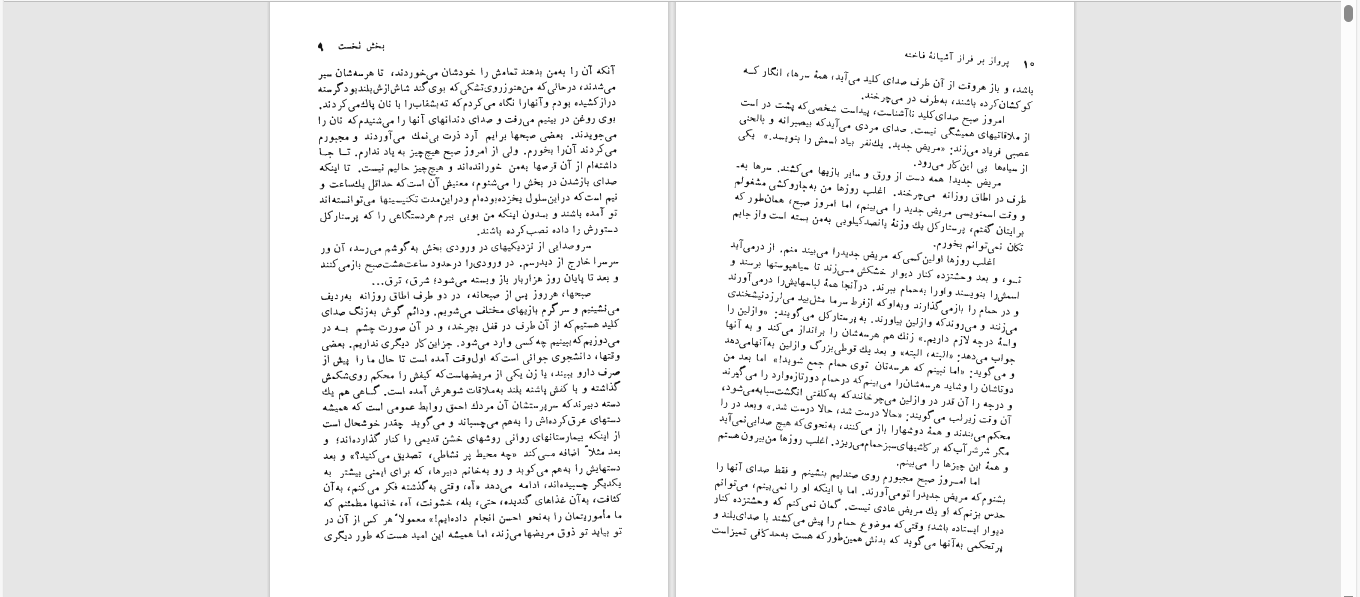 بخش نخست ۹
آنکه آن را به‌من بدهند تمامش را خودشان می‌خوردند، تا هرسه‌شان سیر
می‌شدند، درحالی‌که من‌هنوزروی‌تشکی‌که بوی‌گند شاش‌ازش‌بلندبودگرسته
درازکشیده بودم وآنهارا نگاه می‌کردم‌که ته‌بشقاب‌را با نان پاك‌می‌کردند.
بوی روغن در بینیم می‌رفت و صدای دندانهای آنها را می‌شنیدم‌که نان را
می‌جویدند. بعضی صبحها برایم آرد ذرت بی‌نمك می‌آوردند و مجبورم
می‌کردند آن‌را بخورم. ولی از امروز صبح هیچ‌چیز به یاد ندارم. تا جا
داشته‌ام از آن قرصها به‌من خورانده‌اند و هیچ‌چیز حالیم نیست. تا اینکه
صدای بازشدن در بخش را می‌شنوم، معنیش آن است‌که حداقل یك‌ساعت و
نیم است‌که دراین‌سلول یخزده‌بوده‌ام ودراین‌مدت تکنیسینها می‌توانسته‌اند
تو آمده باشند و بدون اینکه من بویی ببرم هردستگاعی را که پرستارکل
دستورش را داده نصب‌کرده باشند.
سروصدایی از نزدیکیهای در ورودی بخش به‌گوشم می‌رسد، آن ور
سرسرا خارج از دیدرسم. در ورودی‌را درحدود ساعت‌هشت‌صبح بازمی‌کنند
و بعد تا پایان روز هزاربار باز وبسته می‌شود؛ شرق، ترق...
صبحها، هرروز پس از صبحانه، در دو طرف اطاق روزانه به‌ردیف
می‌نشینیم و سرگرم بازیهای مختلف می‌شویم. ودائم گوش به‌زنگ صدای
کلید هستیم‌که از آن طرف در قفل بچرخد، و در آن صورت چشم به در
می‌دوزیم‌که‌ببینیم چه‌کسی وارد می‌شود. جزاین‌کار دیگری نداریم. بعضی
وقتها، دانشجوی جوانی است‌که اول‌وقت آمده است تا حال ما را پیش از
صرف دارو ببیند، یا زن یکی از مریضهاست‌که کیفش را محکم روی‌شکمش
گذاشته و با کفش پاشنه بلند به‌ملاقات شوهرش آمده است. گاهی هم یك
دسته دبیرندکه سرپرستشان آن مردك احمق روابط عمومی است که همیشه
دستهای عرق‌کرده‌اش را به‌هم می‌چسباند و می‌گوید چقدر خوشحال است
از اینکه بیمارستانهای روانی روشهای خشن قدیمی را کنار گذارده‌اند؛ و
بعد مثلاً اضافه می‌کند «چه محیط پر نشاطی، تصدیق می‌کنید؟» و بعد
دستهایش را به‌هم می‌کوبد و رو به‌خانم دبیرها، که برای ایمنی بیشتر به
یکدیگر چسبیده‌اند، ادامه می‌دهد «آه، وقتی به‌گذشته فکر می‌کنم، به‌آن
کثافت، به‌آن غذاهای گندیده، حتی، بله، خشونت، آه، خانمها مطمئنم که
ما مأموریتمان را به‌نحو احسن انجام داده‌ایم!» معمولاً هر کس از آن در
تو بیاید تو ذوق مریضها می‌زند، اما همیشه این امید هست‌که طور دیگری
۱۰ پرواز بر فراز آشیانهٔ فاخته
باشد، و باز هروقت از آن طرف صدای کلید می‌آید، همهٔ سرها، انگار که
کوکشان‌کرده باشند، به‌طرف در می‌چرخند.
امروز صبح صدای‌کلید ناآشناست، پیداست شخصی‌که پشت در است
از ملاقاتیهای همیشگی نیست. صدای مردی می‌آیدکه بیصبرانه و بالحنی
عصبی فریاد می‌زند: «مریض جدید. یك‌نفر بیاد اسمش را بنویسد.» یکی
از سیاه‌ها پی این‌کار می‌رود.
مریض جدید! همه دست از ورق و سایر بازیها می‌کشند. سرها به‌
طرف در اطاق روزانه می‌چرخند. اغلب روزها من به‌جاروکشی مشغولم
و وقت اسمنویسی مریض جدید را می‌بینم، اما امروز صبح، همان‌طور که
برایتان گفتم، پرستارکل یك وزنهٔ پانصدکیلویی به‌من بسته است واز جایم
تکان نمی‌توانم بخورم.
اغلب روزها اولین‌کسی‌که مریض جدیدرا می‌بیند منم. از درمی‌آید
تو، و بعد وحشتزده کنار دیوار خشکش می‌زند تا سیاهپوستها برسند و
اسمش‌را بنویسند واورا به‌حمام ببرند. درآنجا همهٔ لباسهایش‌را درمی‌آورند
و در حمام را بازمی‌گذارند وبه‌اوکه ازفرط سرما مثل‌بید می‌لرزدنیشخندی
می‌زنند و می‌روندکه وازلین بیاورند. به پرستارکل می‌گویند: «وازلین را
واسهٔ درجه لازم داریم.» زنك هم هرسه‌شان را برانداز می‌کند و به آنها
جواب می‌دهد: «البته، البته» و بعد یك قوطی‌بزرگ وازلین به‌آنهامی‌دهد
و می‌گوید: «اما نبینم که هرسه‌تان توی حمام جمع شوید!» اما بعد من
دوتاشان را وشاید هرسه‌شان‌را می‌بینم‌که درحمام دورتازه‌وارد را می‌گیرند
و درجه را آن قدر در وازلین می‌چرخانندکه به‌کلفتی انگشت‌سبابه‌می‌شود،
آن وقت زیرلب می‌گویند: «حالا درست شد، حالا درست شد.» وبعد در را
محکم می‌بندند و همهٔ دوشهارا باز می‌کنند، به‌نحوی‌که هیچ صدایی‌نمی‌آید
مگر شرشرآب‌که بر کاشیهای‌سبزحمام‌می‌ریزد. اغلب روزها من‌بیرون هستم
و همهٔ این چیزها را می‌بینم.
اما امروز صبح مجبورم روی صندلیم بنشینم و فقط صدای آنها را
بشنوم‌که مریض جدیدرا تومی‌آورند. اما با اینکه او را نمی‌بینم، می‌توانم
حدس بزنم‌که او یك مریض عادی نیست. گمان نمی‌کنم که وحشتزده کنار
دیوار ایستاده باشد؛ وقتی‌که موضوع حمام را پیش می‌کشند با صدای‌بلند و
پرتحکمی به‌آنها می‌گوید که بدنش همین‌طورکه هست به‌حدکافی تمیزاست